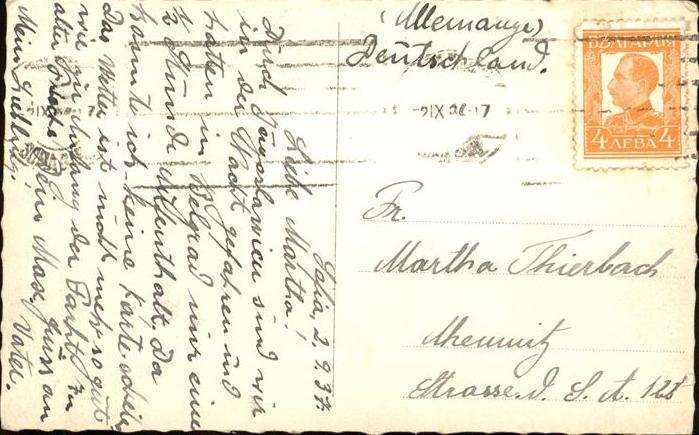 Sofia, 2.9.37.
Liebe Martha!
Durch Jugoslawien sind wir
in der Nacht gefahren und
hatten in Belgrad nur eine
Stunde Aufenthalt, da
konnte ich keine Karte schrb.
Das Wetter ist nicht mehr so gut
wie zu Anfang der Fahrt. In
alter Frische Dein Max. Gruss an
Vater.
(Allemange)
Deutschland.
БЪЛГАРИЯ
4 ЛЕВА 4
2IX 17
Fr.
Martha Thierbach
Chemnitz
Strasse d. S. A. 128